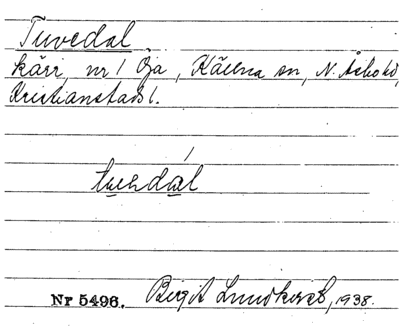 Tuvedal
kärr, nr 1 Öja, Källna sn, N. Åsbo hd,
Kristianstads l.
Nr 5496. Birgit Lundkvist, 1938.